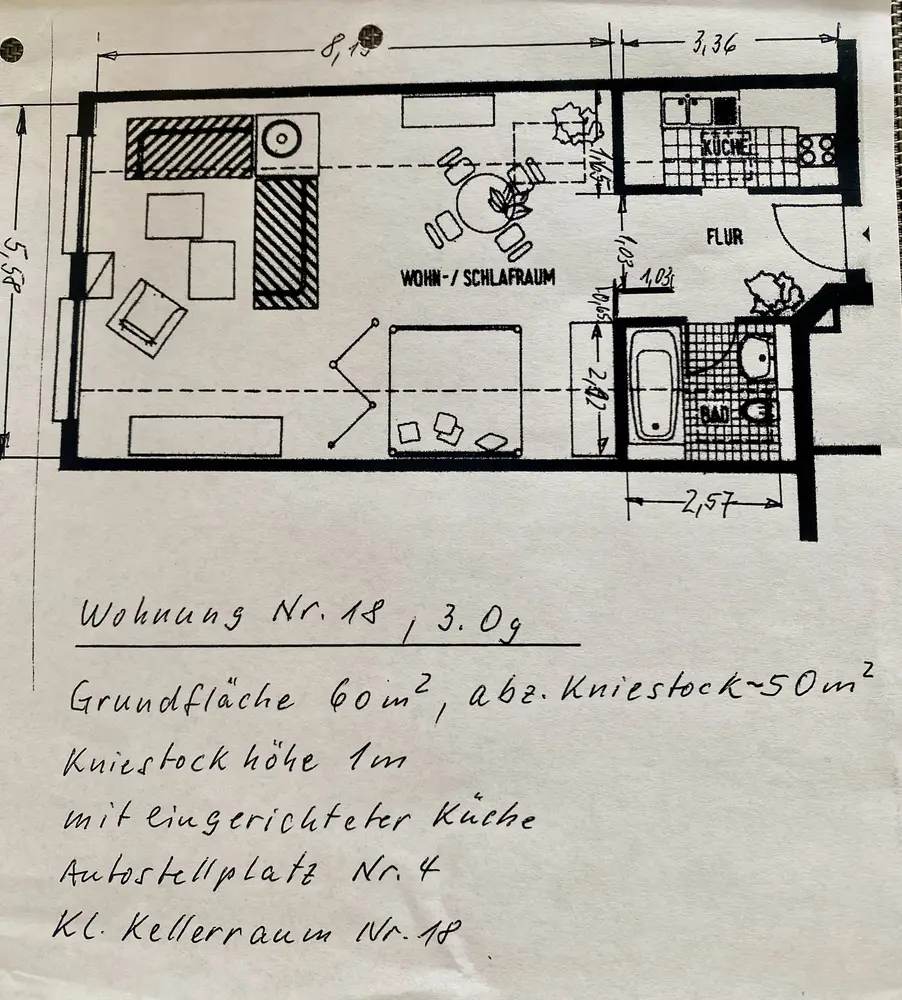 8,15
3,36
5,58
KÜCHE
1,65
FLUR
1,03
1,03
WOHN-/ SCHLAFRAUM
0,65
2,02
BAD
2,57
Wohnung Nr. 18, 3. Og
Grundfläche 60m², abz. Kniestock ~50m²
Kniestockhöhe 1m
mit eingerichteter Küche
Autostellplatz Nr. 4
Kl. Kellerraum Nr. 18